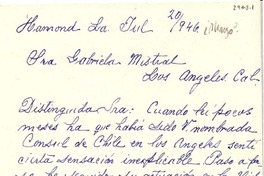 2943-1
Hamond La Jul 20/946 ¿Marzo?
Sra Gabriela Mistral
Los Angeles. Cal.
Distinguida Sra: Cuando leí pocos
meses ha que había sido V. nombrada
Consul de Chile en los Angeles sentí
cierta sensación inexplicable. Paso a fa-